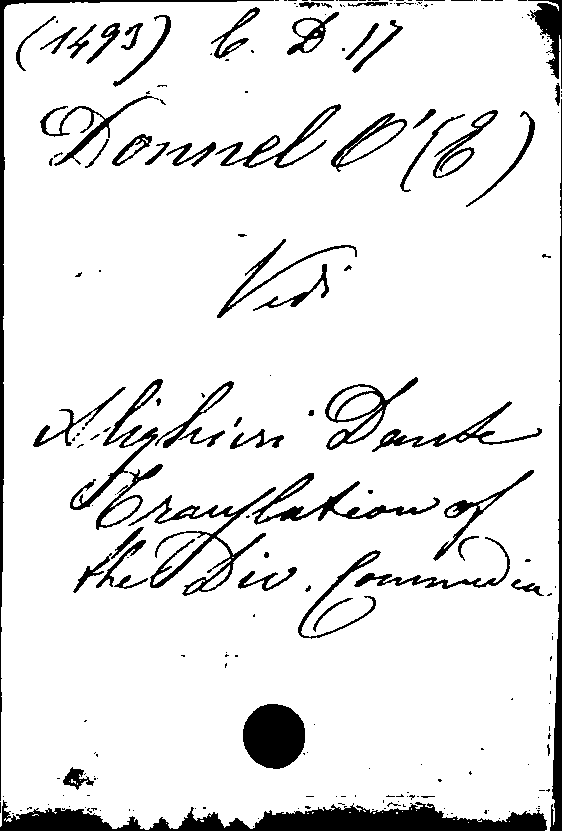 (1493) C. D. 17
Donnel O' (E)
Vedi
Alighieri Dante
Translation of
the Div. Commedia